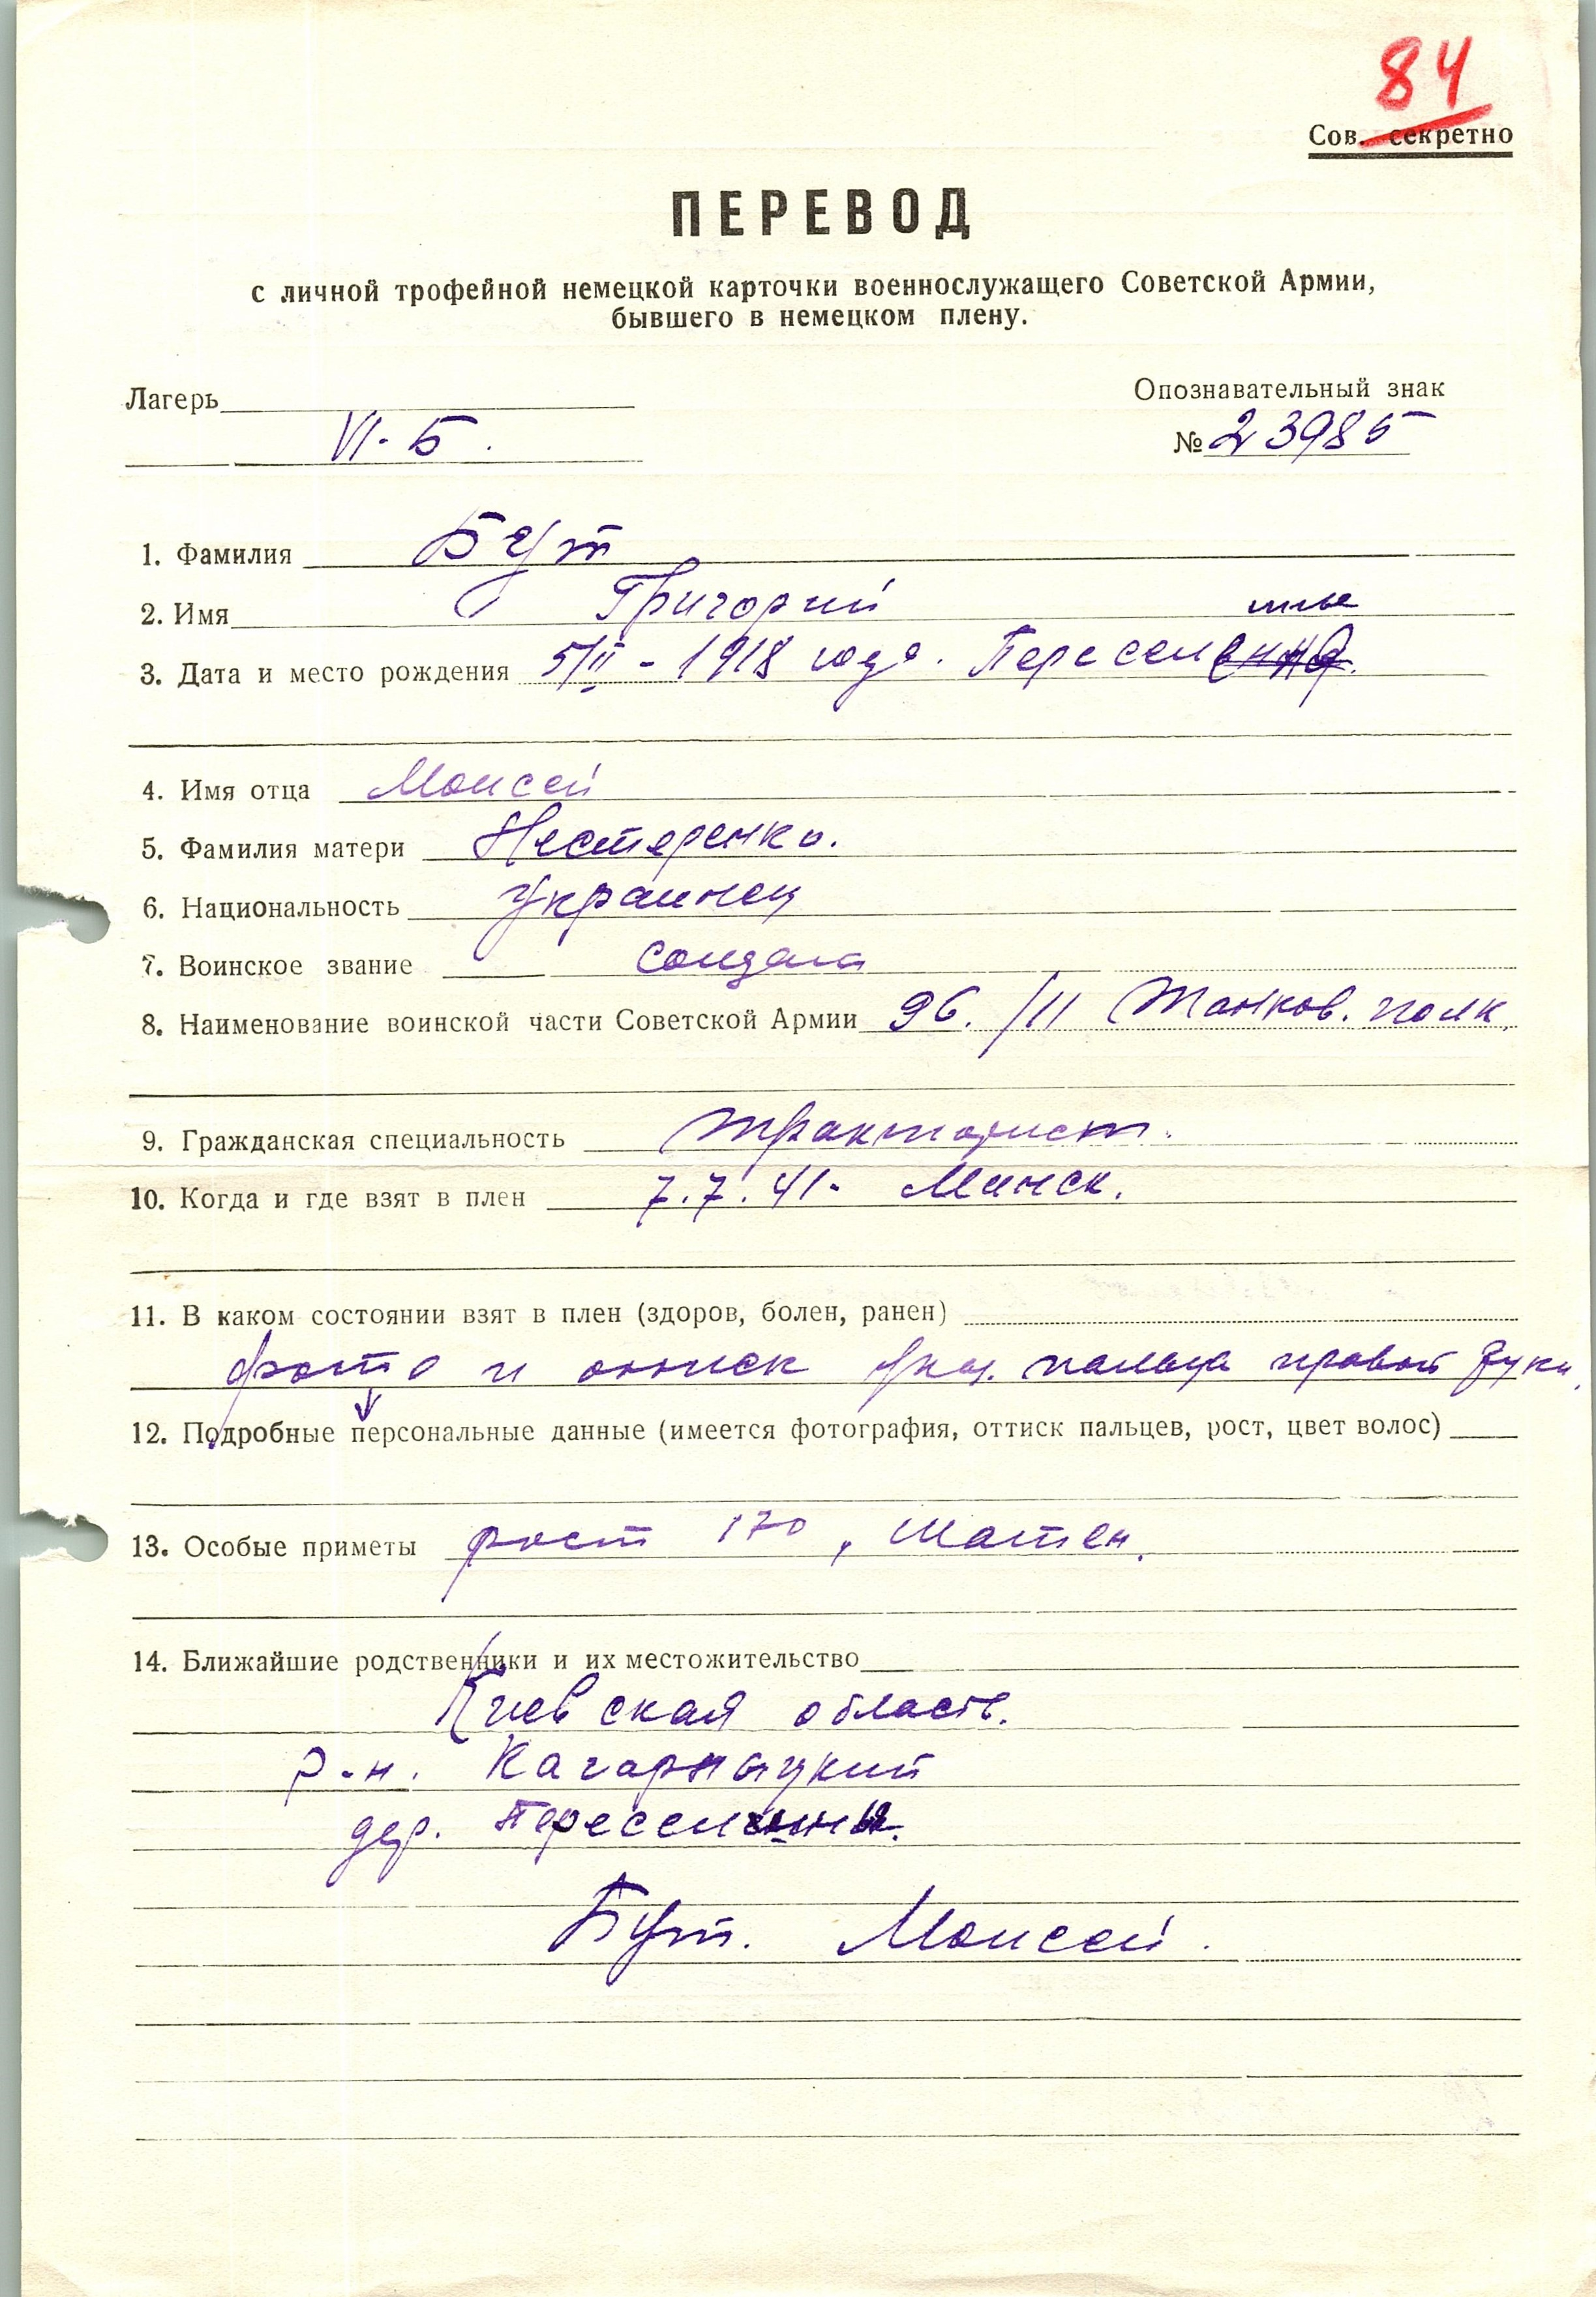 84
Сов. секретно
ПЕРЕВОД
с личной трофейной немецкой карточки военнослужащего Советской Армии,
бывшего в немецком плену.
Лагерь
VI-Б.
Опознавательный знак
№ 23985
1. Фамилия Бут
2. Имя Григорий
3. Дата и место рождения 5/II - 1918 года. Пересел
4. Имя отца Моисей
5. Фамилия матери Нестеренко.
6. Национальность Украинец
7. Воинское звание солдат
8. Наименование воинской части Советской Армии 96./II Танков. полк.
9. Гражданская специальность тракторист.
10. Когда и где взят в плен 7.7.41- Минск.
11. В каком состоянии взят в плен (здоров, болен, ранен)
фото и оттиск указ. пальца правой руки.
12. Подробные персональные данные (имеется фотография, оттиск пальцев, рост, цвет волос)
13. Особые приметы рост 170, Шатен.
14. Ближайшие родственники и их местожительство
Киевская область.
р-н. Кагарлыцкий
дер.
Бут. Моисей.